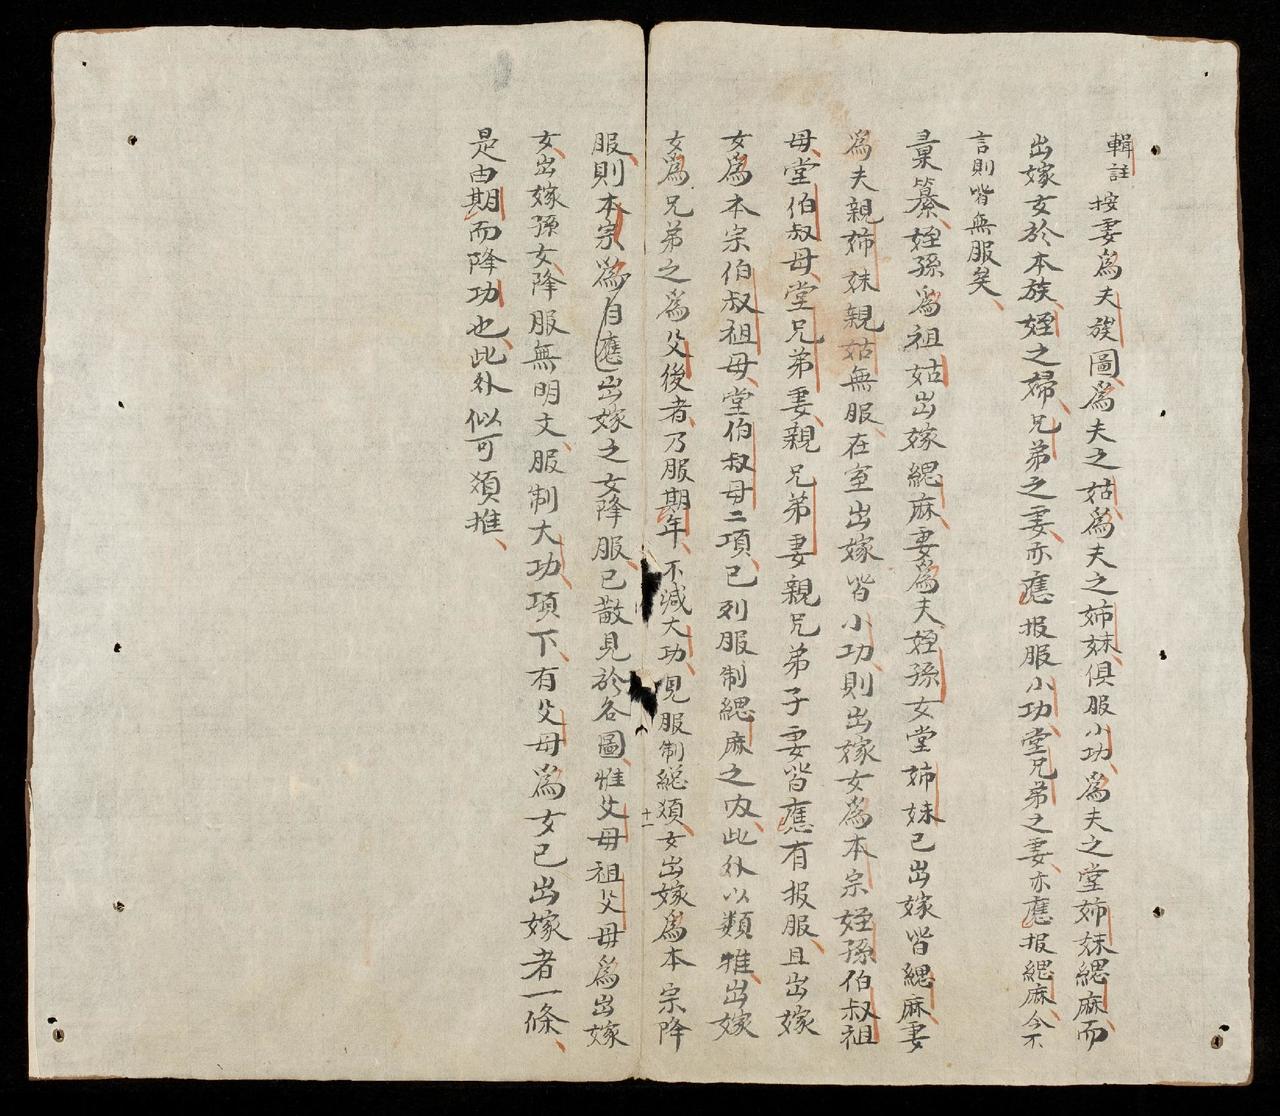 輯註 按妻為夫族圖為夫之姑為夫之姉妹俱服小功為夫之堂姉妹緦麻而
出嫁女於本族姪之婦兄弟之妻亦應报服小功堂兄弟之妻亦應报緦麻今不
言則皆無服矣
彚纂姪孫為祖姑出嫁緦麻妻為夫姪孫女堂姉妹已出嫁皆緦麻妻
為夫親姉妹親姑無服在室出嫁皆小功則出嫁女為本宗姪孫伯叔祖
母堂伯叔母堂兄弟妻親兄弟妻親兄弟子妻皆應有报服且出嫁
女為本宗伯叔祖母堂伯叔母二項已列服制緦麻之內此外以類推出嫁
女為兄弟之為父後者乃服期年不减大功見服制總類女出嫁為本宗降
服則本宗為自應出嫁之女降服已散見於各圖惟父母祖父母為出嫁
女出嫁孫女降服無明文服制大功項下有父母為女已出嫁者一條
是由期而降功也此外似可類推
十一